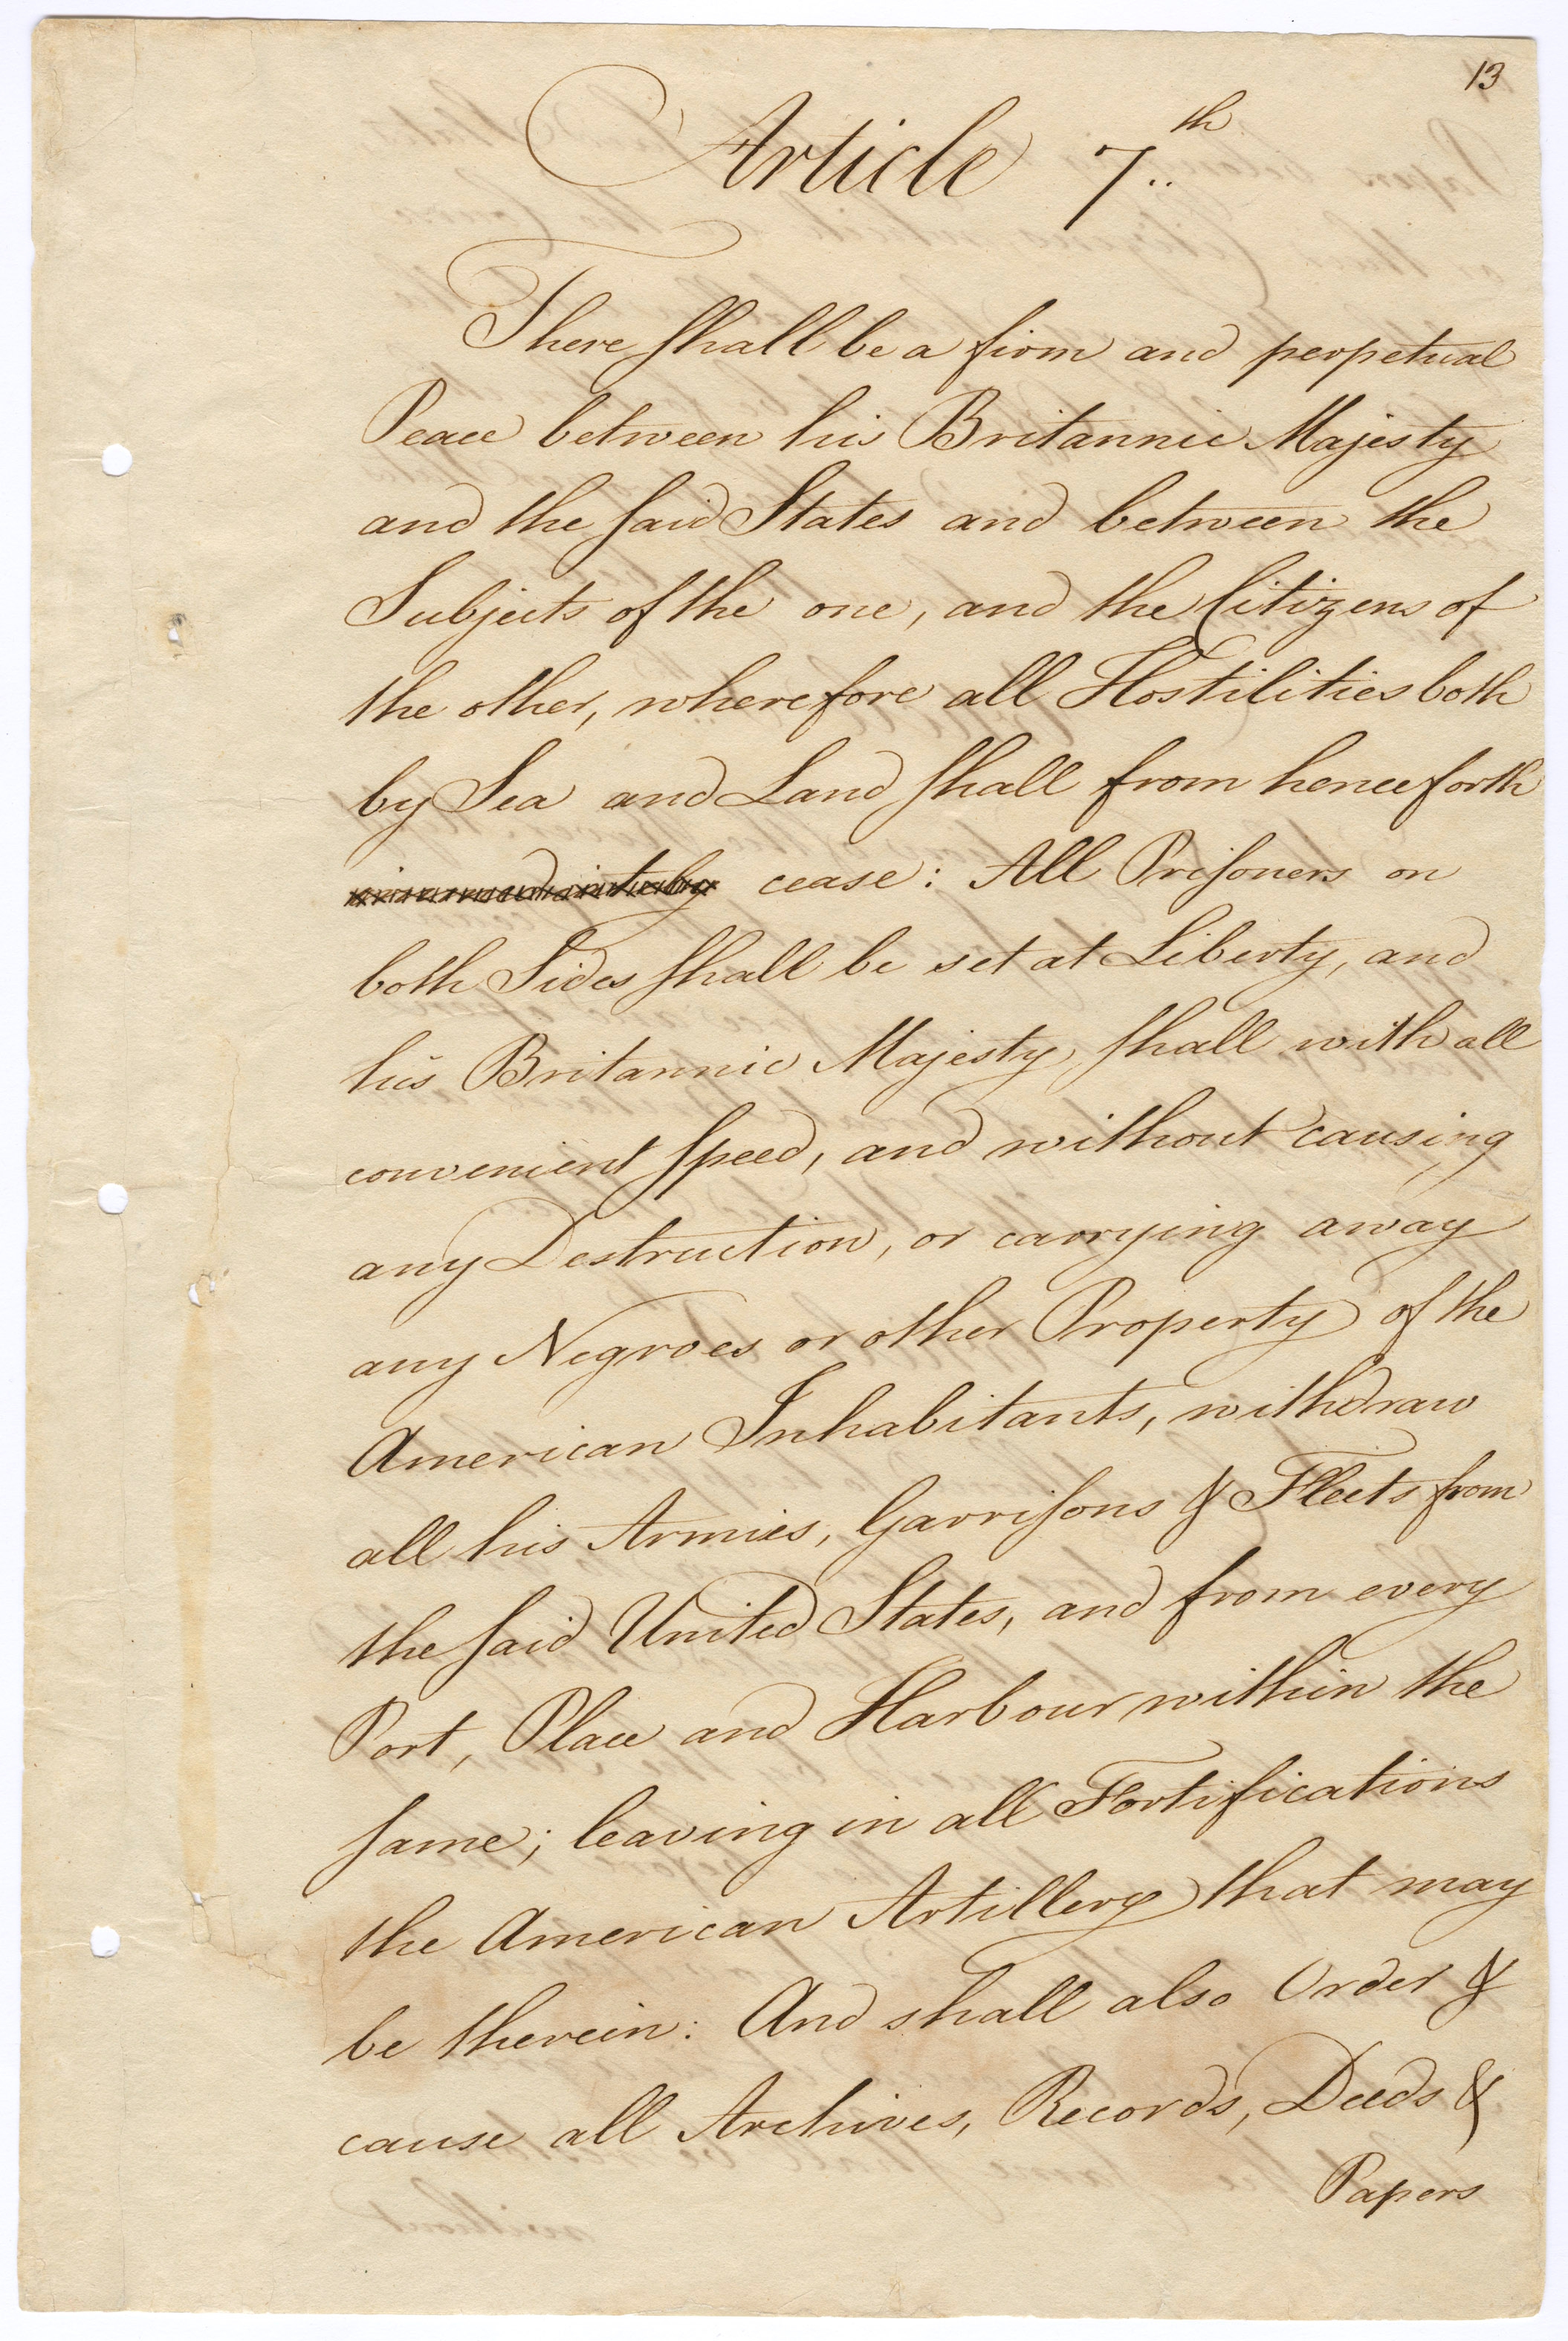 13
Article 7th
There shall be a firm and perpetual
Peace between his Britannic Majesty
and the said States and between the
Subjects of the one, and the Citizens of
the other, wherefore all Hostilities both
by Sea and Land shall from henceforth
immediately cease: All Prisoners on
both Sides shall be set at Liberty, and
his Britannic Majesty shall with all
convenient speed, and without causing
any Destruction, or carrying away
any Negroes or other Property of the
American Inhabitants, withdraw
all his Armies, Garrisons & Fleets from
the said United States, and from every
Port, Place and Harbour within the
same; leaving in all Fortifications
the American Artillery that may
be therein: And shall also Order &
cause all Archives, Records, Deeds &
Papers